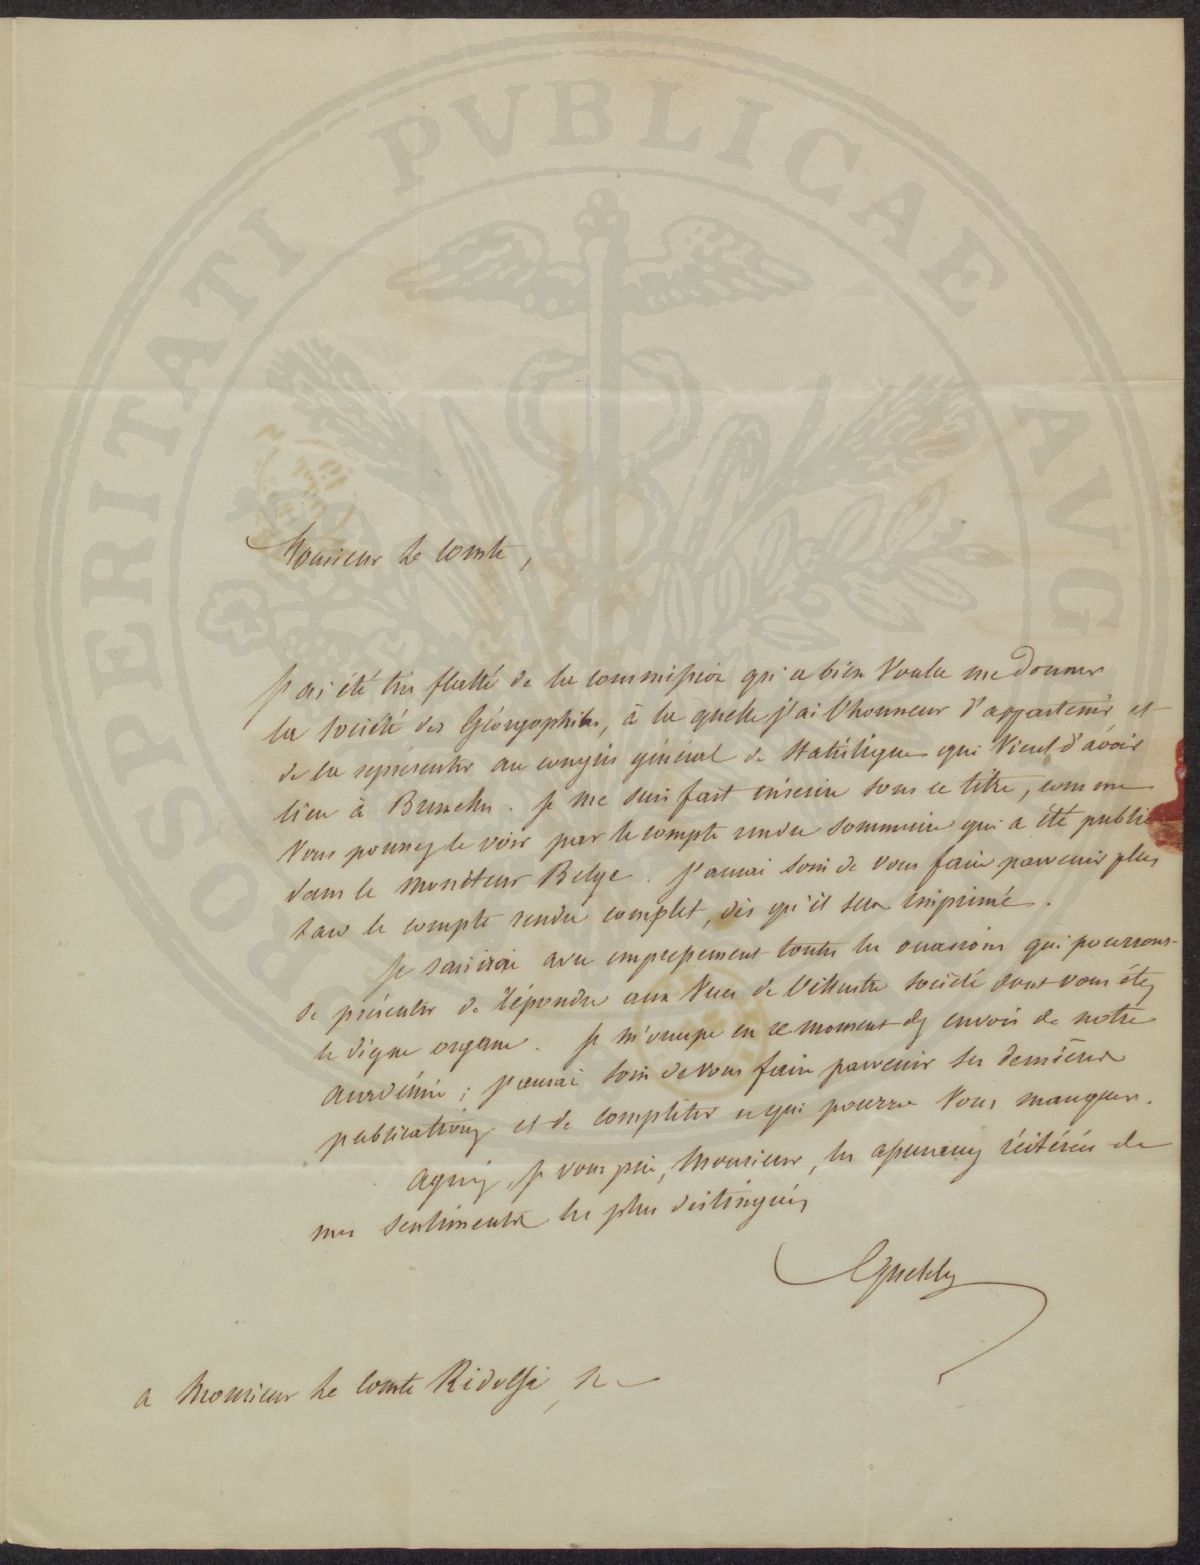 PROSPERITATI PVBLICAE AVG
Monsieur le comte,
J'ai été très flatté de la commission qui a bien voulu me donner
la société des Géorgophiles, à la quelle j'ai l'honneur d'appartenir, et
de la représenter au congrès général de statistique qui vient d'avoir
lieu à Bruxelles. Je me suis fait inscrire sous ce titre, comme
vous pourrez le voir par le compte rendu sommaire qui a été publié
dans le moniteur Belge. J'aurai soin de vous faire parvenir plus
tard le compte rendu complet, dès qu'il sera imprimé.
Je saisirai avec empressement toutes les occasions qui pourront
se présenter de répondre aux vues de l'illustre société dont vous êtes
le digne organe. Je m'occupe en ce moment des envois de notre
académie ; j'aurai soin de vous faire parvenir ses dernières
publications et de compléter ce qui pourra vous manquer.
Agréez, je vous prie, Monsieur, les assurances réitérées de
mes sentiments les plus distingués
Quetelet
a Monsieur le comte Ridolfi,